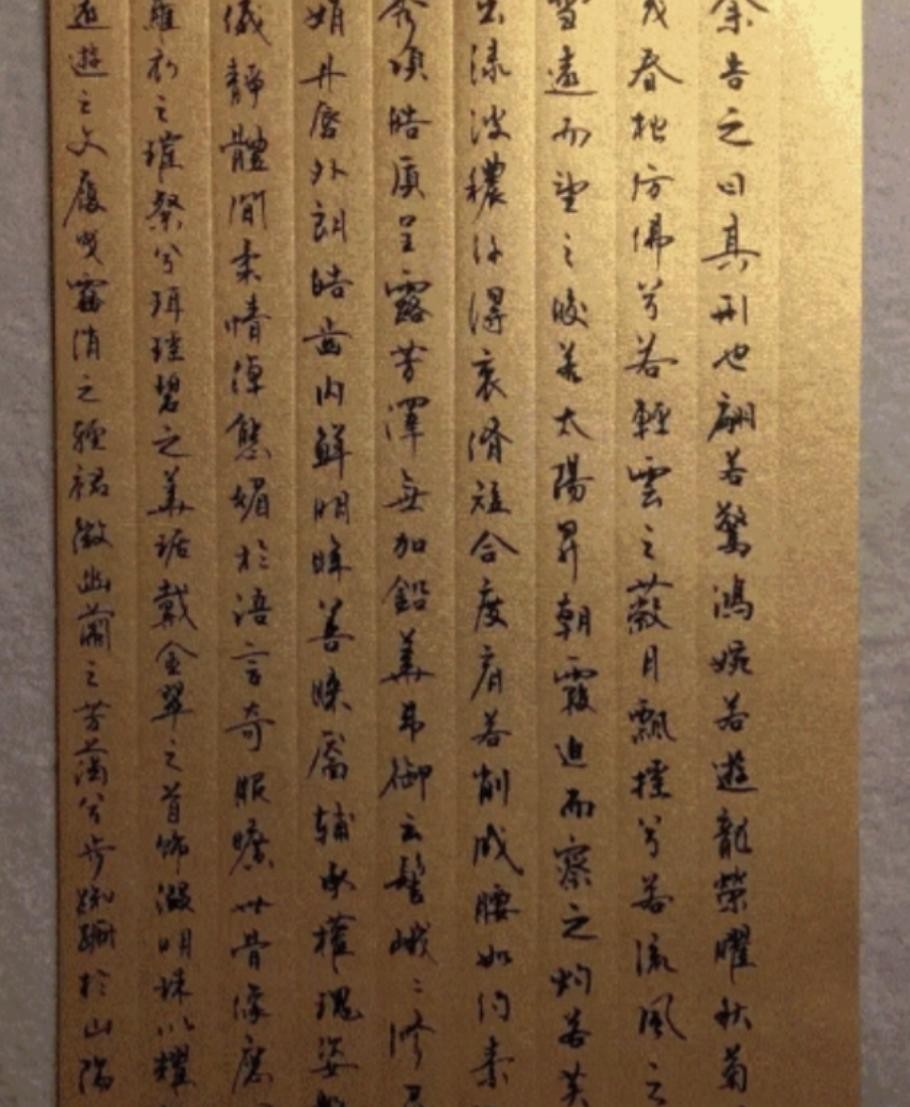 余告之曰其刑也翩若驚鴻婉若遊龍榮曜秋菊
茂春松仿佛兮若輕雲之蔽月飄搖兮若流風之
雪遠而望之皎若太陽昇朝霞迫而察之灼若芙
出淥波穠纖得衷脩短合度肩若削成腰如約素
秀項皓質呈露芳澤無加鉛華弗御云髻峨〻脩
娟丹唇外朗皓齒内鮮明眸善睞靨輔承權瑰姿
儀靜體閒柔情綽態媚於語言奇服曠世骨像應
羅衣之璀粲兮珥瑤碧之華琚戴金翠之首飾綴明珠以耀
遠遊之文履曳霧綃之輕裾微幽蘭之芳藹兮步踟躕於山隅